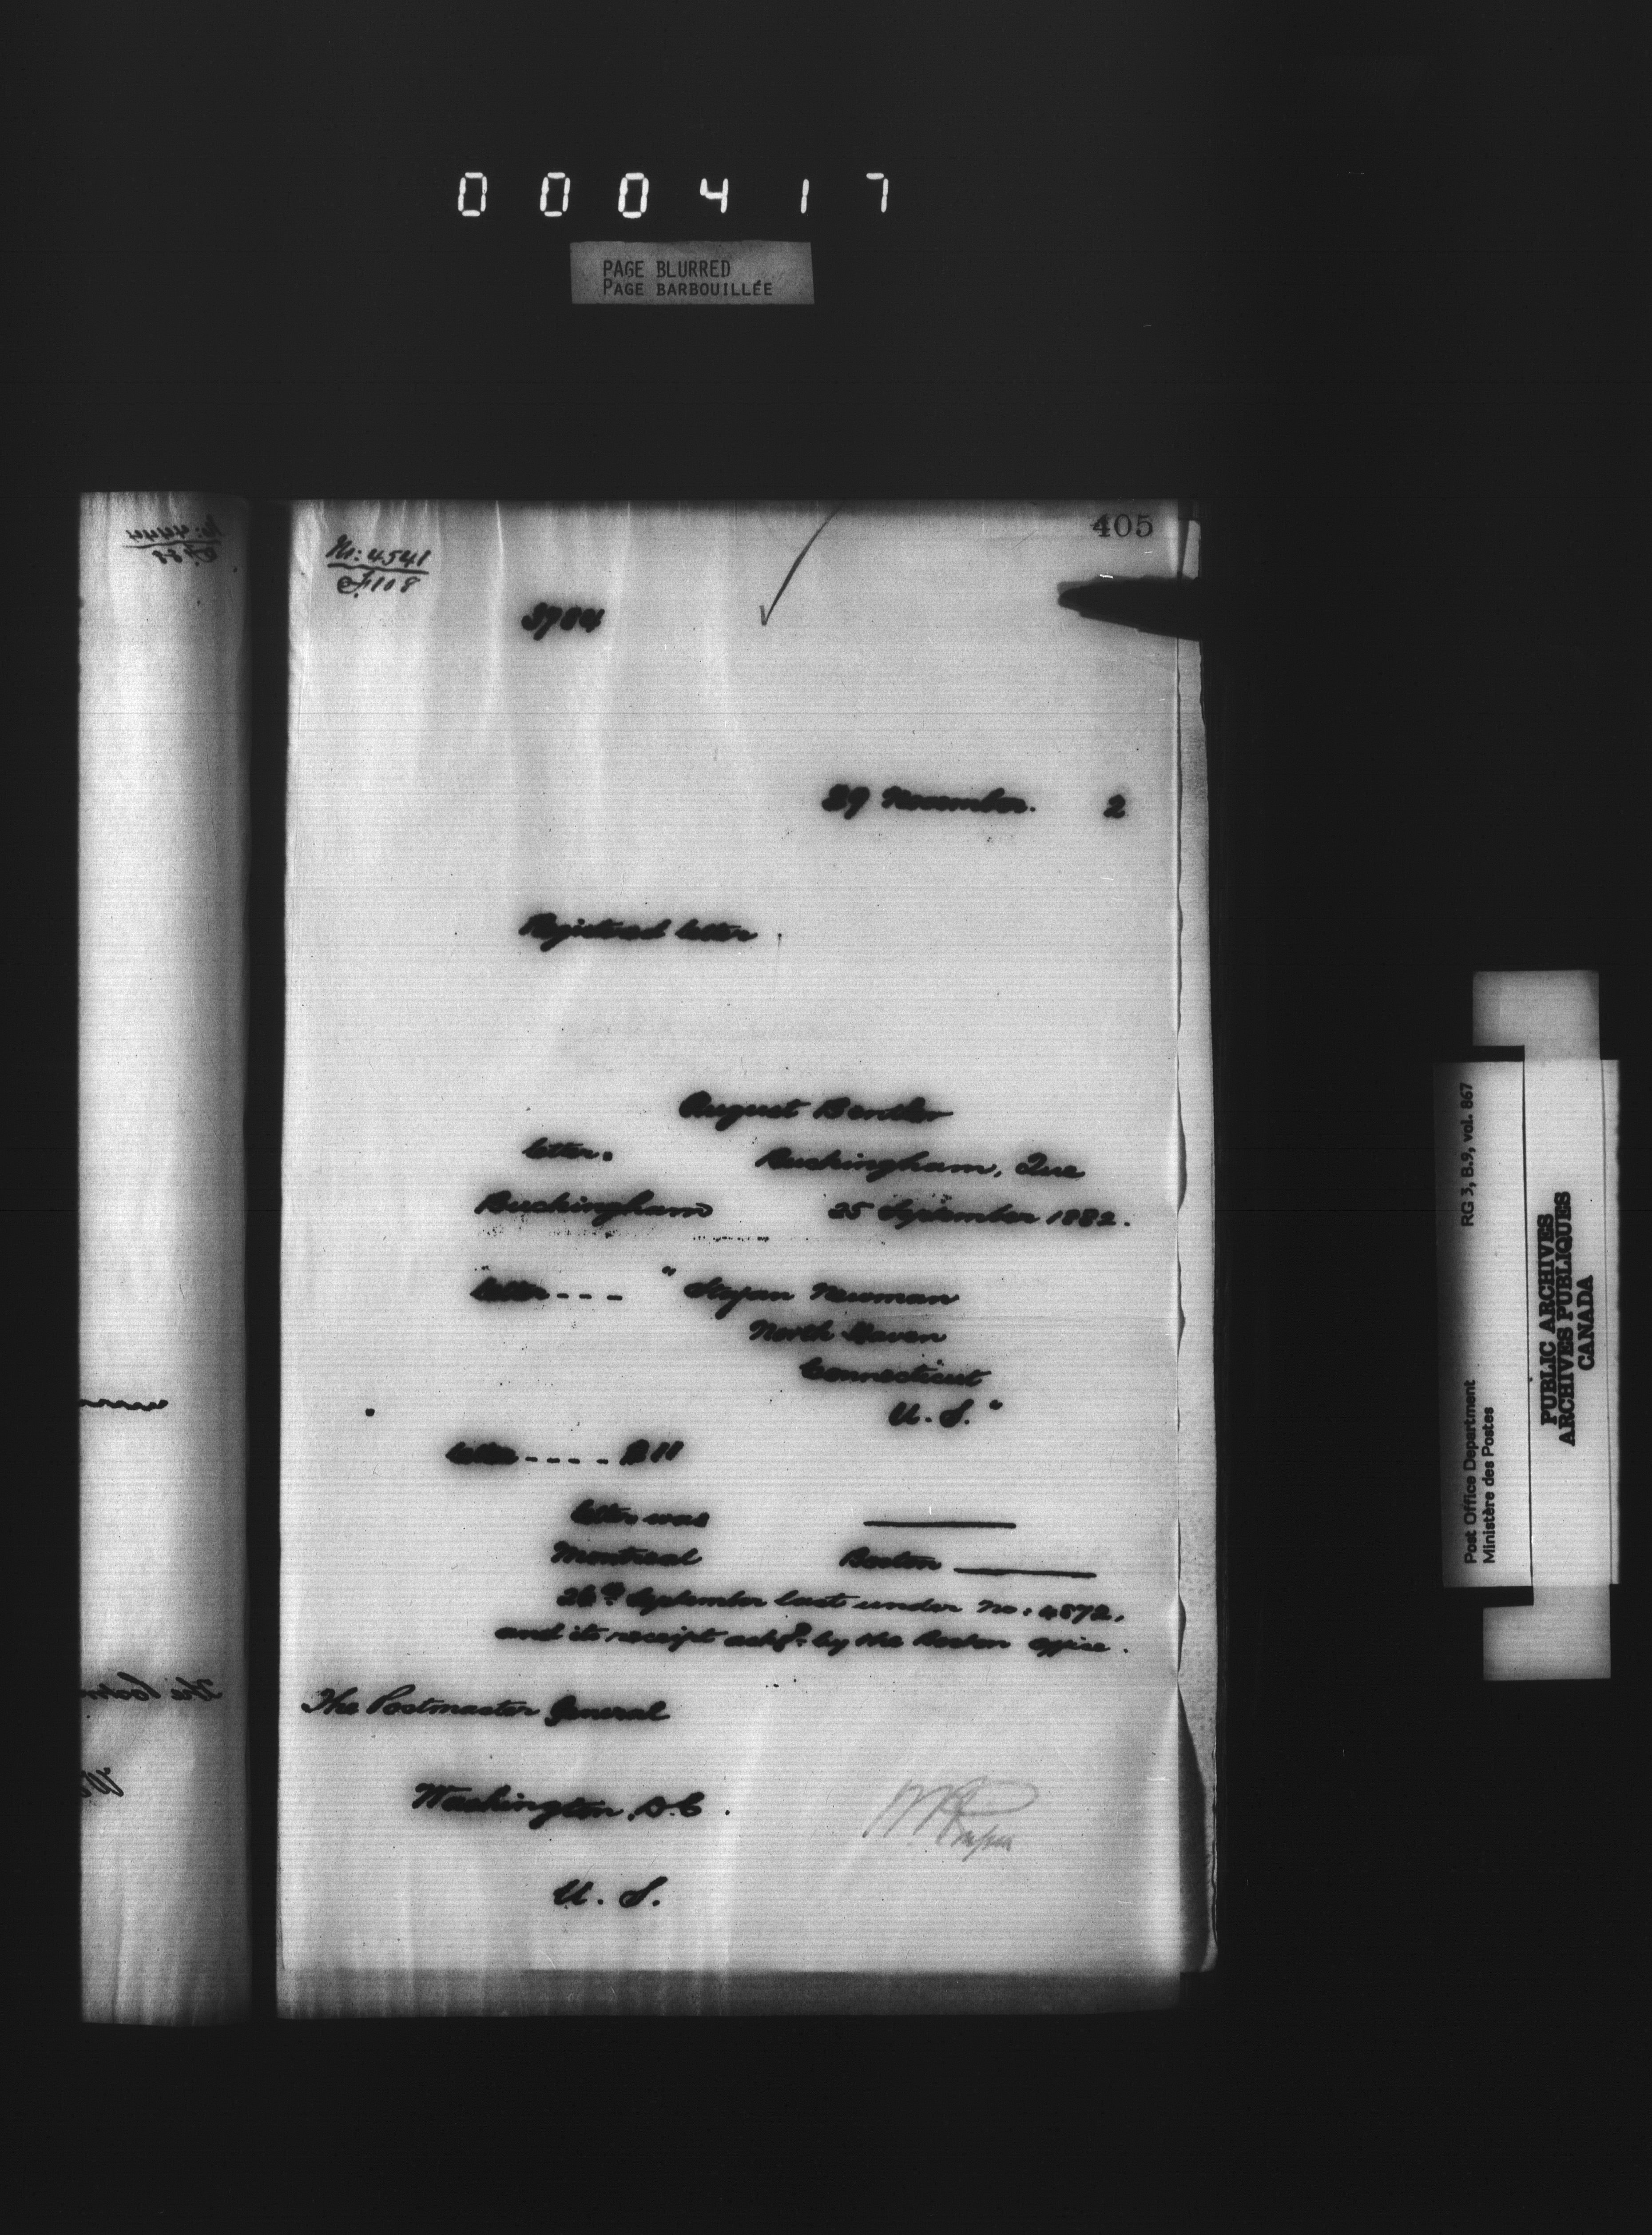 000417
PAGE BLURRED
PAGE BARBOUILLÉE
405
No: 4541
F.108
3784
29 November. 2
Registered letter
August Bentler
letter. Buckingham, Que
Buckingham 25 September 1882.
letter - - - " Stojan Newman
North Haven
Connecticut
U. S. "
letter - - - - - R 11
letter was
Montreal Boston
26th September last under No: 4872,
and its receipt ackgd. by the Boston office.
The Postmaster General
Washington, D.C.
U. S.
RG 3, B.9, vol. 867
Post Office Department
Ministère des Postes
PUBLIC ARCHIVES
ARCHIVES PUBLIQUES
CANADA